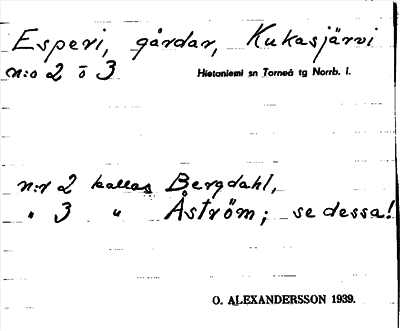 Esperi, gårdar, Kukasjärvi
n:o 2 o 3 Hietaniemi sn Torneå tg Norrb. l.
n:r 2 kallas Bergdahl,
" 3 " Åström; se dessa!
O. ALEXANDERSSON 1939.